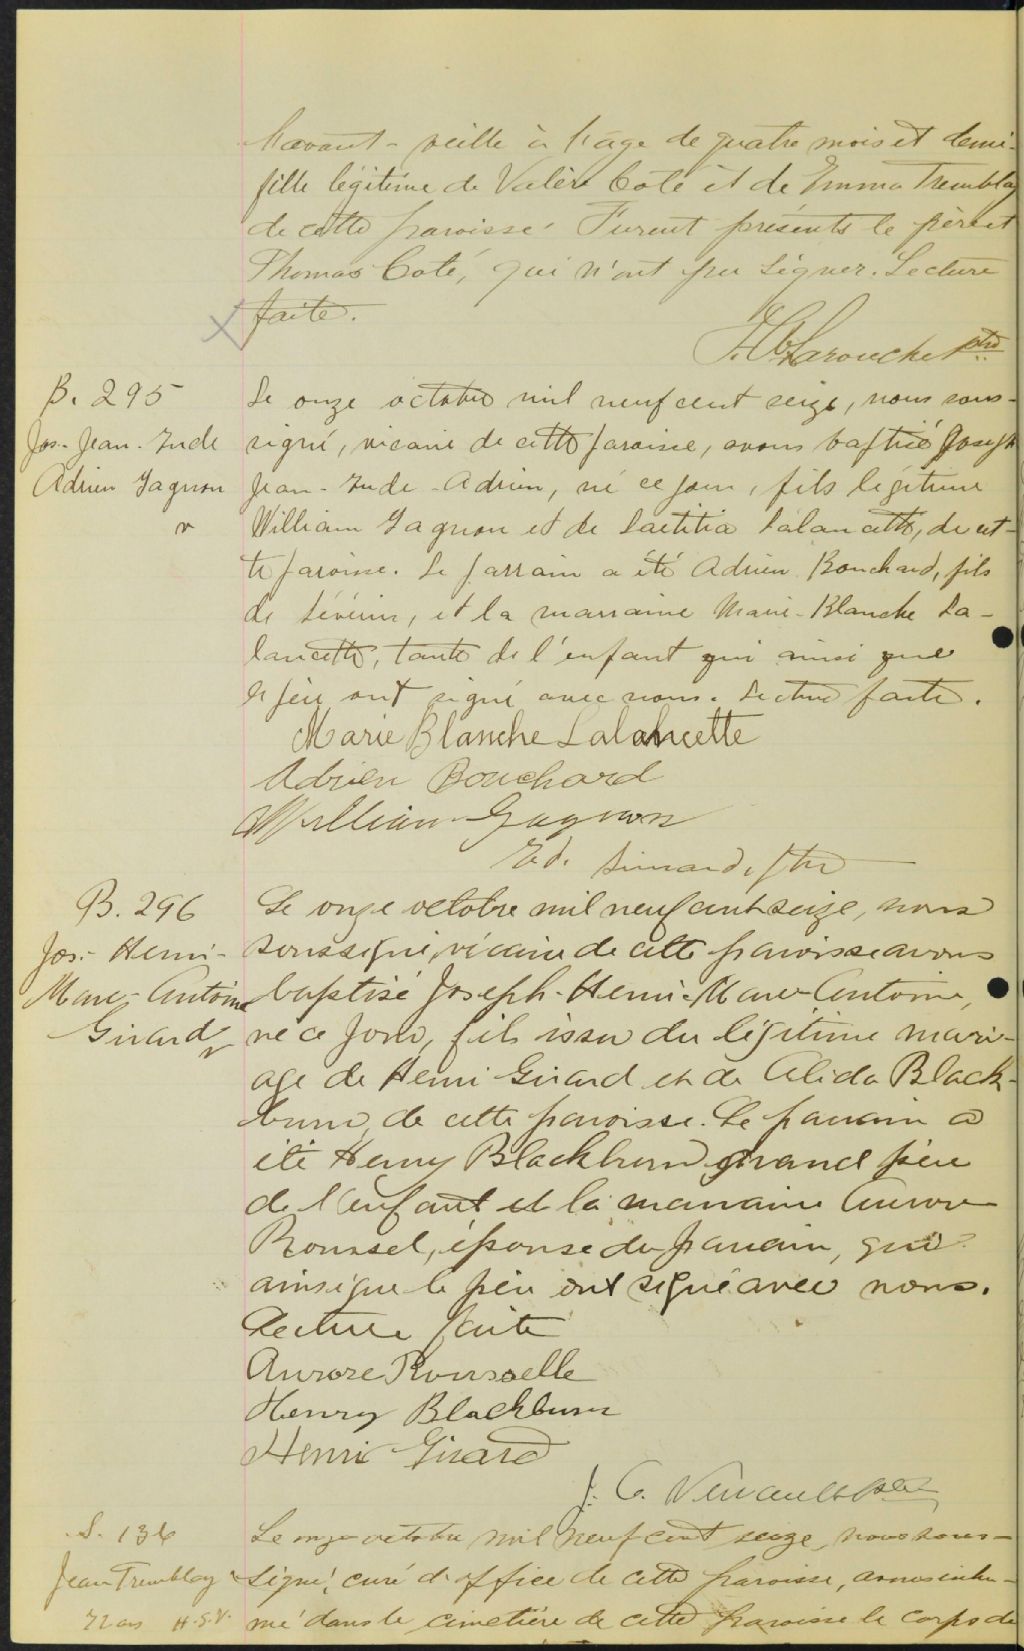 l'avant-veille à l'âge de quatre mois et demi
fille légitime de Valère Coté et de Emma Tremblay
de cette paroisse. Furent présents le père et
Thomas Coté, qui n'ont pu signer. Lecture
faite.
Larouche ptre
B. 295
Jos.-Jean-Jude
Adrien Gagnon
Le onze octobre mil neuf cent seize, nous sous-
signé, vicaire de cette paroisse, avons baptisé Joseph
Jean-Jude-Adrien, né ce jour, fils légitime
William Gagnon et de Laetitia Lalancette, de cet-
te paroisse. Le parrain a été Adrien Bouchard, fils
de Sévérin, et la marraine Marie-Blanche La-
lancette, tante de l'enfant qui ainsi que
le père ont signé avec nous. Lecture faite.
Marie Blanche Lalancette
Adrien Bouchard
William Gagnon
Ed. Simard, ptre
B. 296
Jos.-Henri-
Marc-Antoine
Girard
Le onze octobre mil neuf cent seize, nous
soussigné, vicaire de cette paroisse avons
baptisé Joseph-Henri-Marc-Antoine,
né ce jour, fils issu du légitime mari-
age de Henri Girard et de Alida Black-
burn, de cette paroisse. Le parrain a
été Henry Blackburn grand père
de l'enfant et la marraine Aurore
Roussel, épouse du parrain, qui
ainsi que le père ont signé avec nous.
Lecture faite
Aurore Rousselle
Henry Blackburn
Henri Girard
J. C. ptre
S. 136
Jean Tremblay
72 ans H.S.V.
Le onze octobre mil neuf cent seize, nous sous-
signé, curé d'office de cette paroisse, avons inhu-
mé dans le cimetière de cette paroisse le corps de